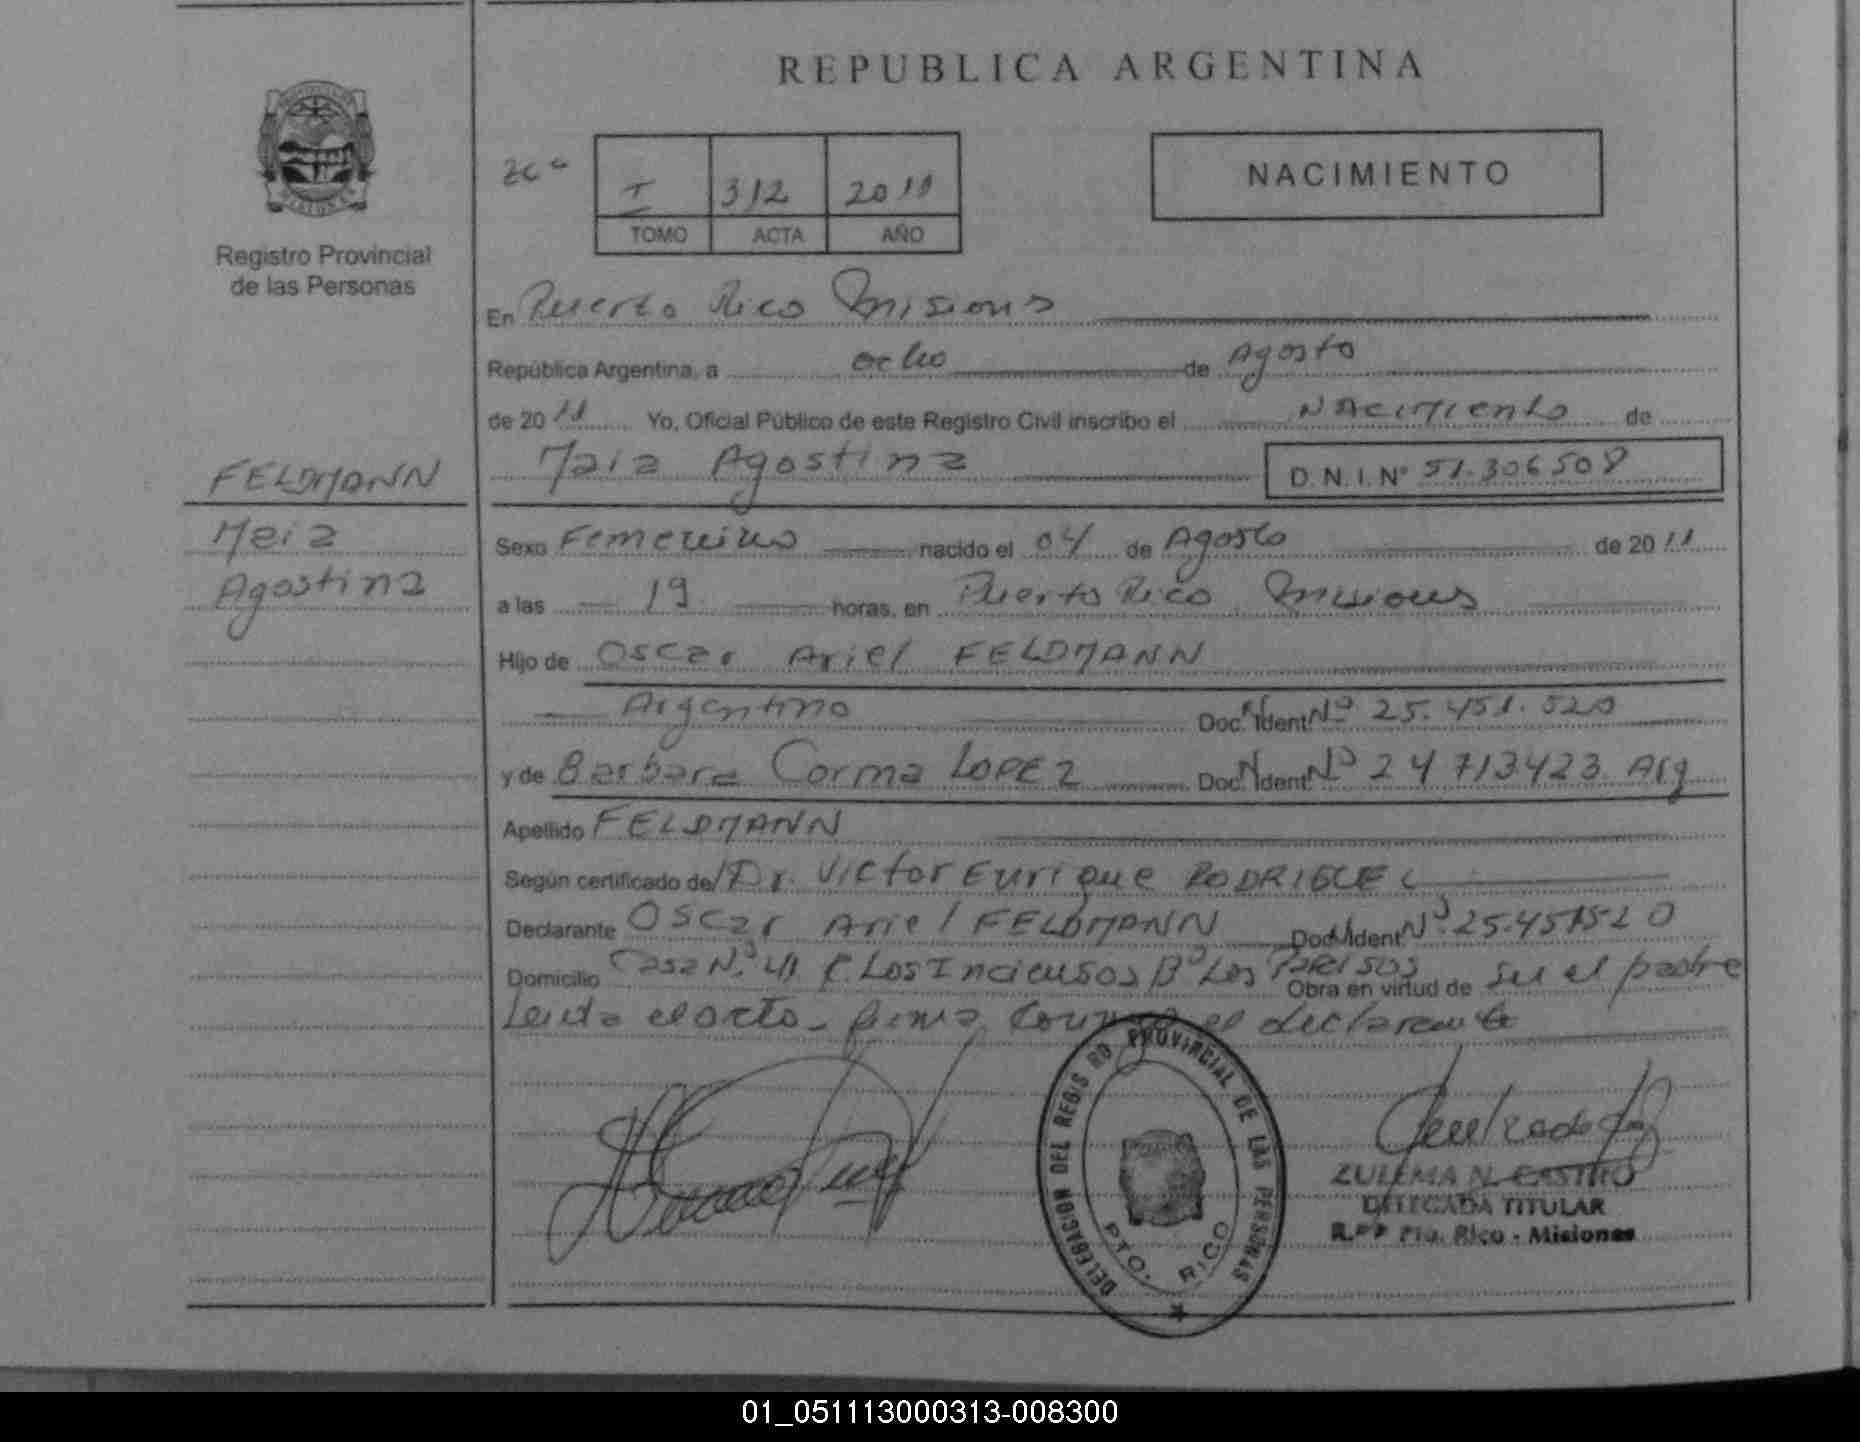 REPUBLICA ARGENTINA
NACIMIENTO
I 312 2011
TOMO ACTA AÑO
Registro Provincial
de las Personas
En Puerto Rico Misiones
República Argentina, a ocho de Agosto
de 2011 Yo, Oficial Público de este Registro Civil inscribo el NACIMIENTO de
Maia Agostina D.N.I. Nº 51.306508
FELDMANN
Maia
Agostina
Sexo Femenino nacido el 04 de Agosto de 2011
a las 19 horas, en Puerto Rico Misiones
Hijo de Oscar Ariel FELDMANN
Argentino Doc. Ident. Nº 25.451.520
y de Barbara Corma LOPEZ Doc. Ident. Nº 24713423 Arg
Apellido FELDMANN
Según certificado de/Dr. Victor Enrique RODRIGUEZ
Declarante Oscar Ariel FELDMANN Doc. Ident Nº 25.451520
Domicilio Casa Nº 41 C. Los Inciensos Bº Los Paraisos Obra en virtud de Ser el padre
Leida el acta - firma conmigo el declarante
DELEGACION DEL REGISTRO PROVINCIAL DE LAS PERSONAS
PTO. RICO
ZULEMA N. CASTRO
DELEGADA TITULAR
R.P.P Pto. Rico - Misiones
01_051113000313-008300